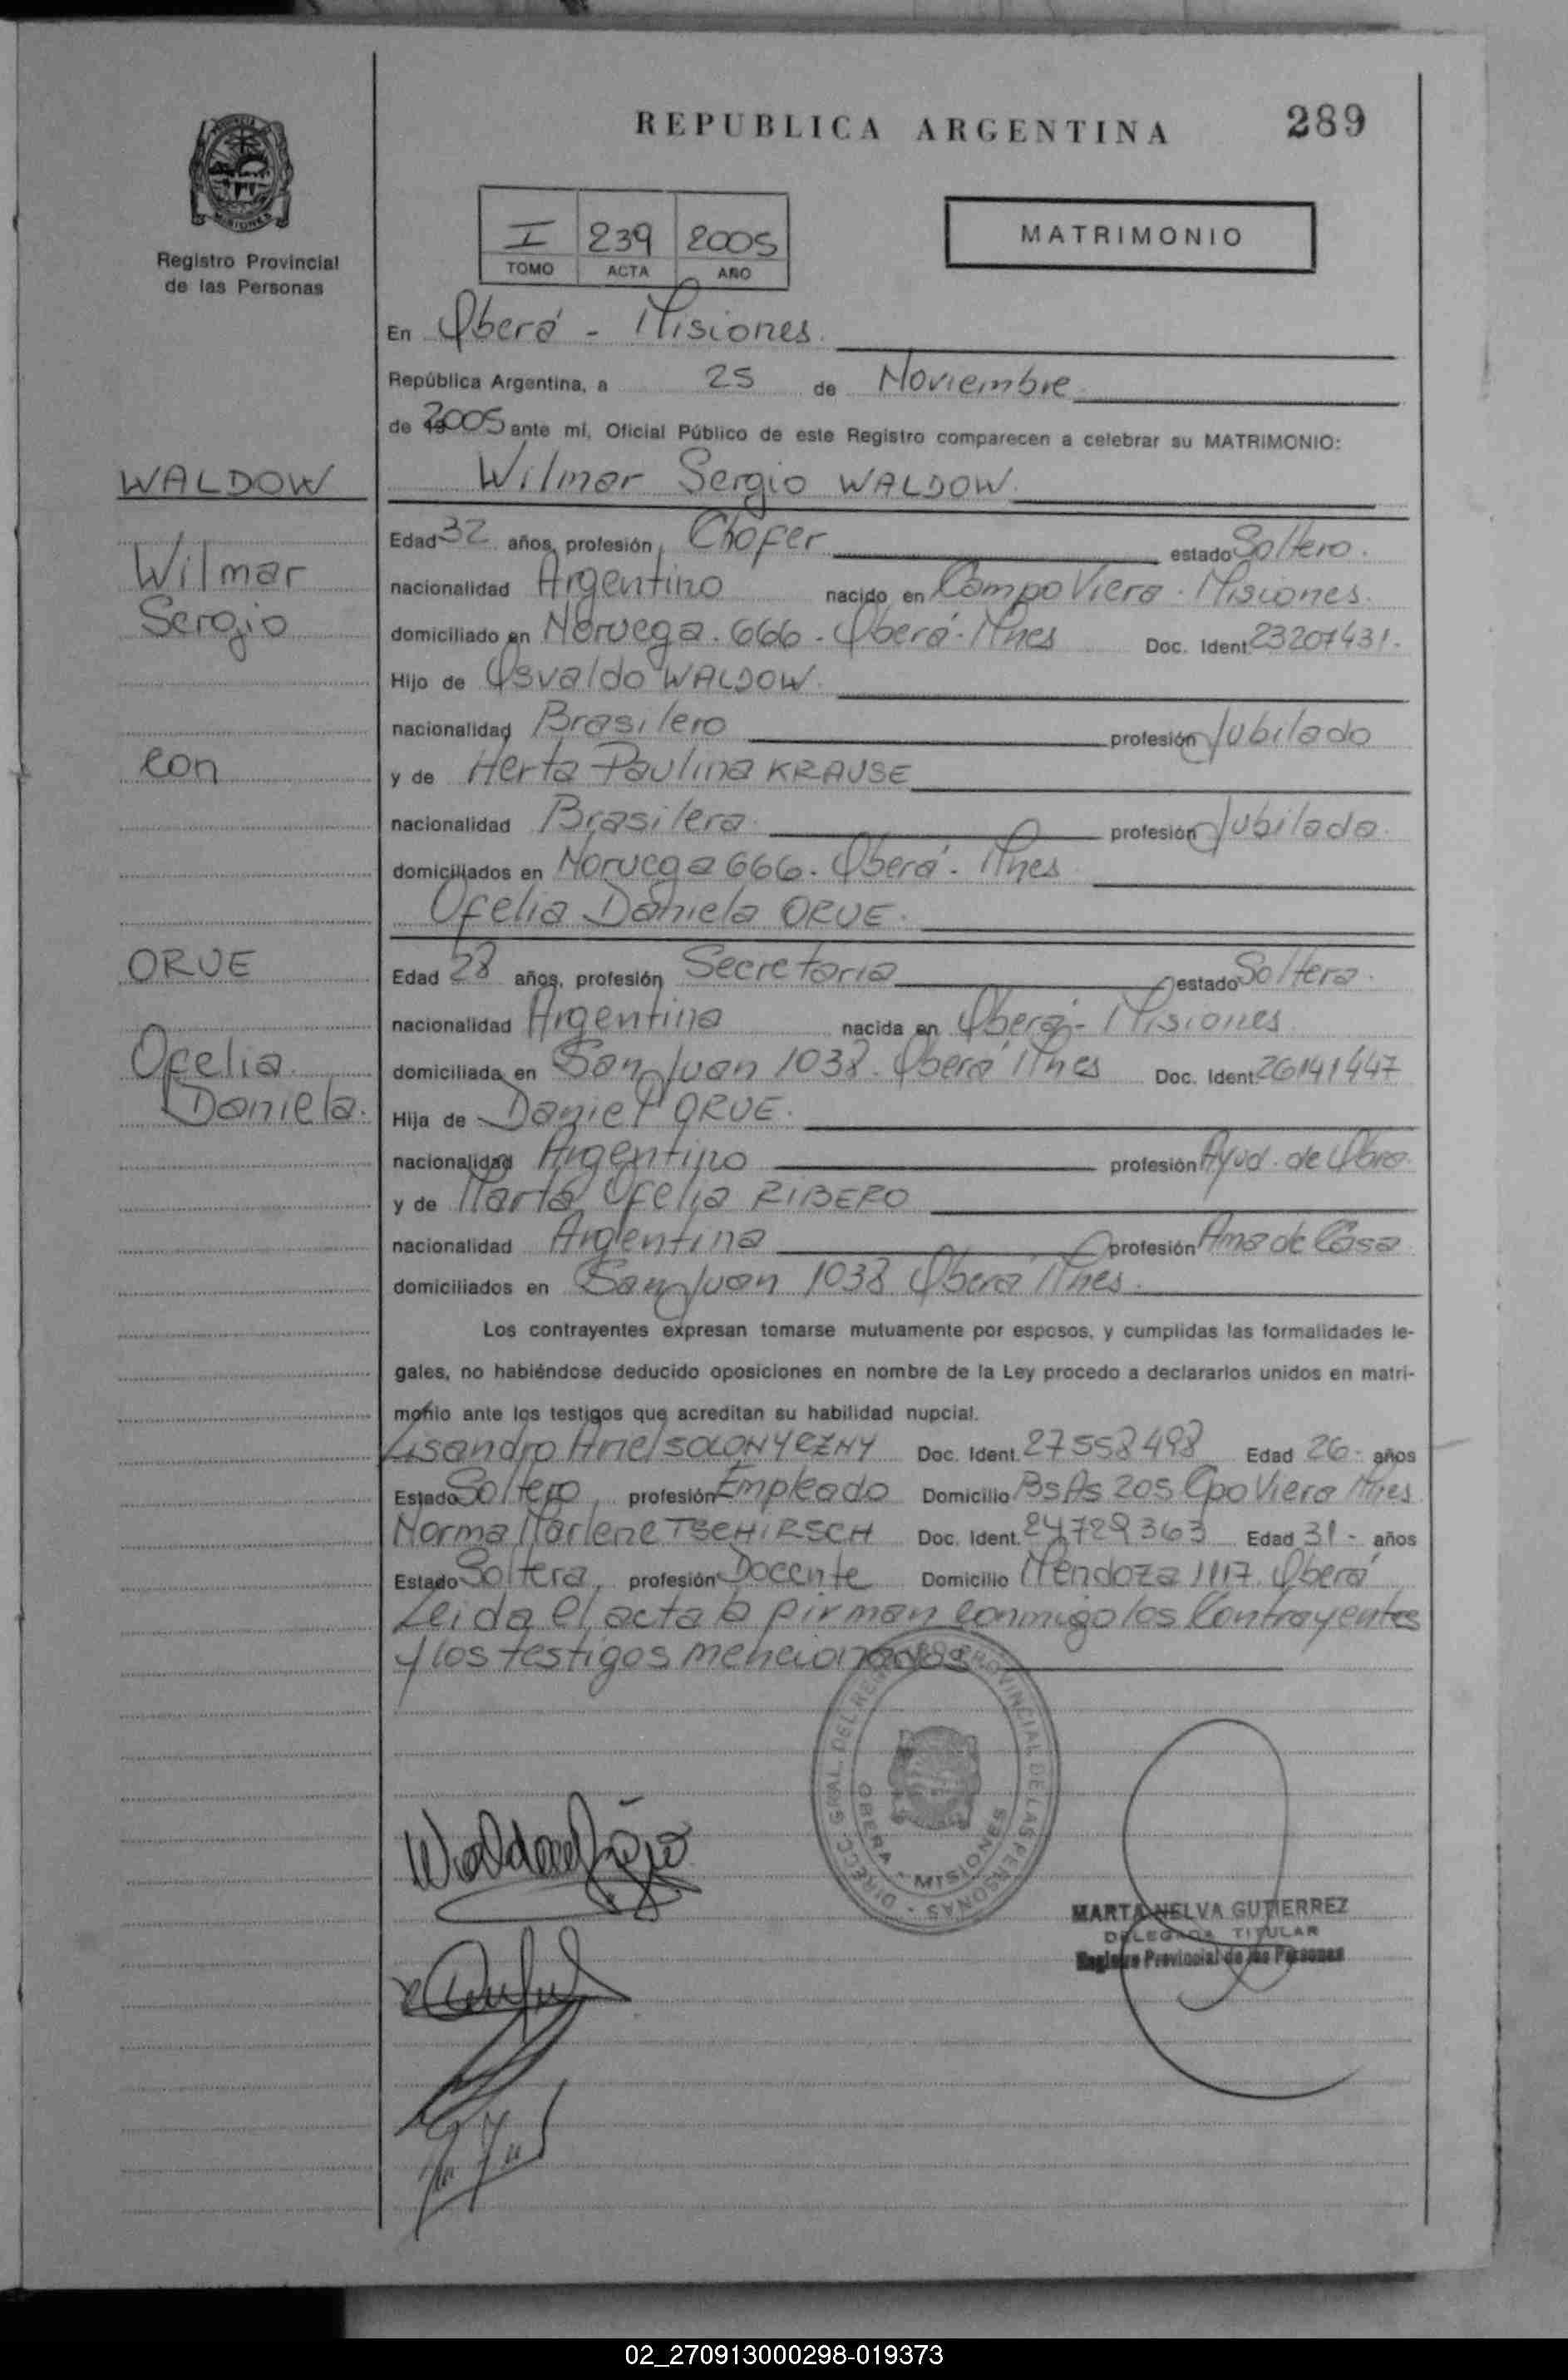 REPUBLICA ARGENTINA
289
Registro Provincial
de las Personas
I 239 2005
TOMO ACTA AÑO
MATRIMONIO
En Oberá - Misiones.
República Argentina, a 25 de Noviembre
de 2005 ante mí, Oficial Público de este Registro comparecen a celebrar su MATRIMONIO:
WALDOW
Wilmar Sergio
con
ORUE
Ofelia
Daniela.
Wilmar Sergio WALDOW.
Edad 32 años, profesión Chofer estado Soltero.
nacionalidad Argentino nacido en Campo Viera. Misiones.
domiciliado en Noruega. 666 - Oberá - Mnes Doc. Ident. 23207431.
Hijo de Osvaldo WALDOW.
nacionalidad Brasilero profesión Jubilado
y de Herta Paulina KRAUSE
nacionalidad Brasilera. profesión Jubilada.
domiciliados en Noruega 666. Oberá. Mnes
Ofelia Daniela ORUE.
Edad 28 años, profesión Secretaria estado Soltera.
nacionalidad Argentina nacida en Oberá - Misiones
domiciliada en San Juan 1038. Oberá Mnes Doc. Ident. 26141447
Hija de Daniel ORUE.
nacionalidad Argentino profesión Ayud. de Obra.
y de Marta Ofelia RIBERO
nacionalidad Argentina profesión Ama de Casa
domiciliados en San Juan 1038 Oberá Mnes.
Los contrayentes expresan tomarse mutuamente por esposos, y cumplidas las formalidades le-
gales, no habiéndose deducido oposiciones en nombre de la Ley procedo a declararlos unidos en matri-
monio ante los testigos que acreditan su habilidad nupcial.
Lisandro Ariel SOLONYEZNY Doc. Ident. 27558498 Edad 26- años
Estado Soltero, profesión Empleado Domicilio Bs As 205 Cpo Viera Mnes
Norma Marlene TSCHIRSCH Doc. Ident. 24729363 Edad 31- años
Estado Soltera, profesión Docente Domicilio Mendoza 1117. Oberá
Leida el acta la firman conmigo los Contrayentes
y los testigos mencionados
DIRECC. GRAL. DEL REGISTRO PROVINCIAL DE LAS PERSONAS
OBERA - MISIONES
MARTA NELVA GUTIERREZ
DELEGADA TITULAR
Registro Provincial de las Personas
02_270913000298-019373